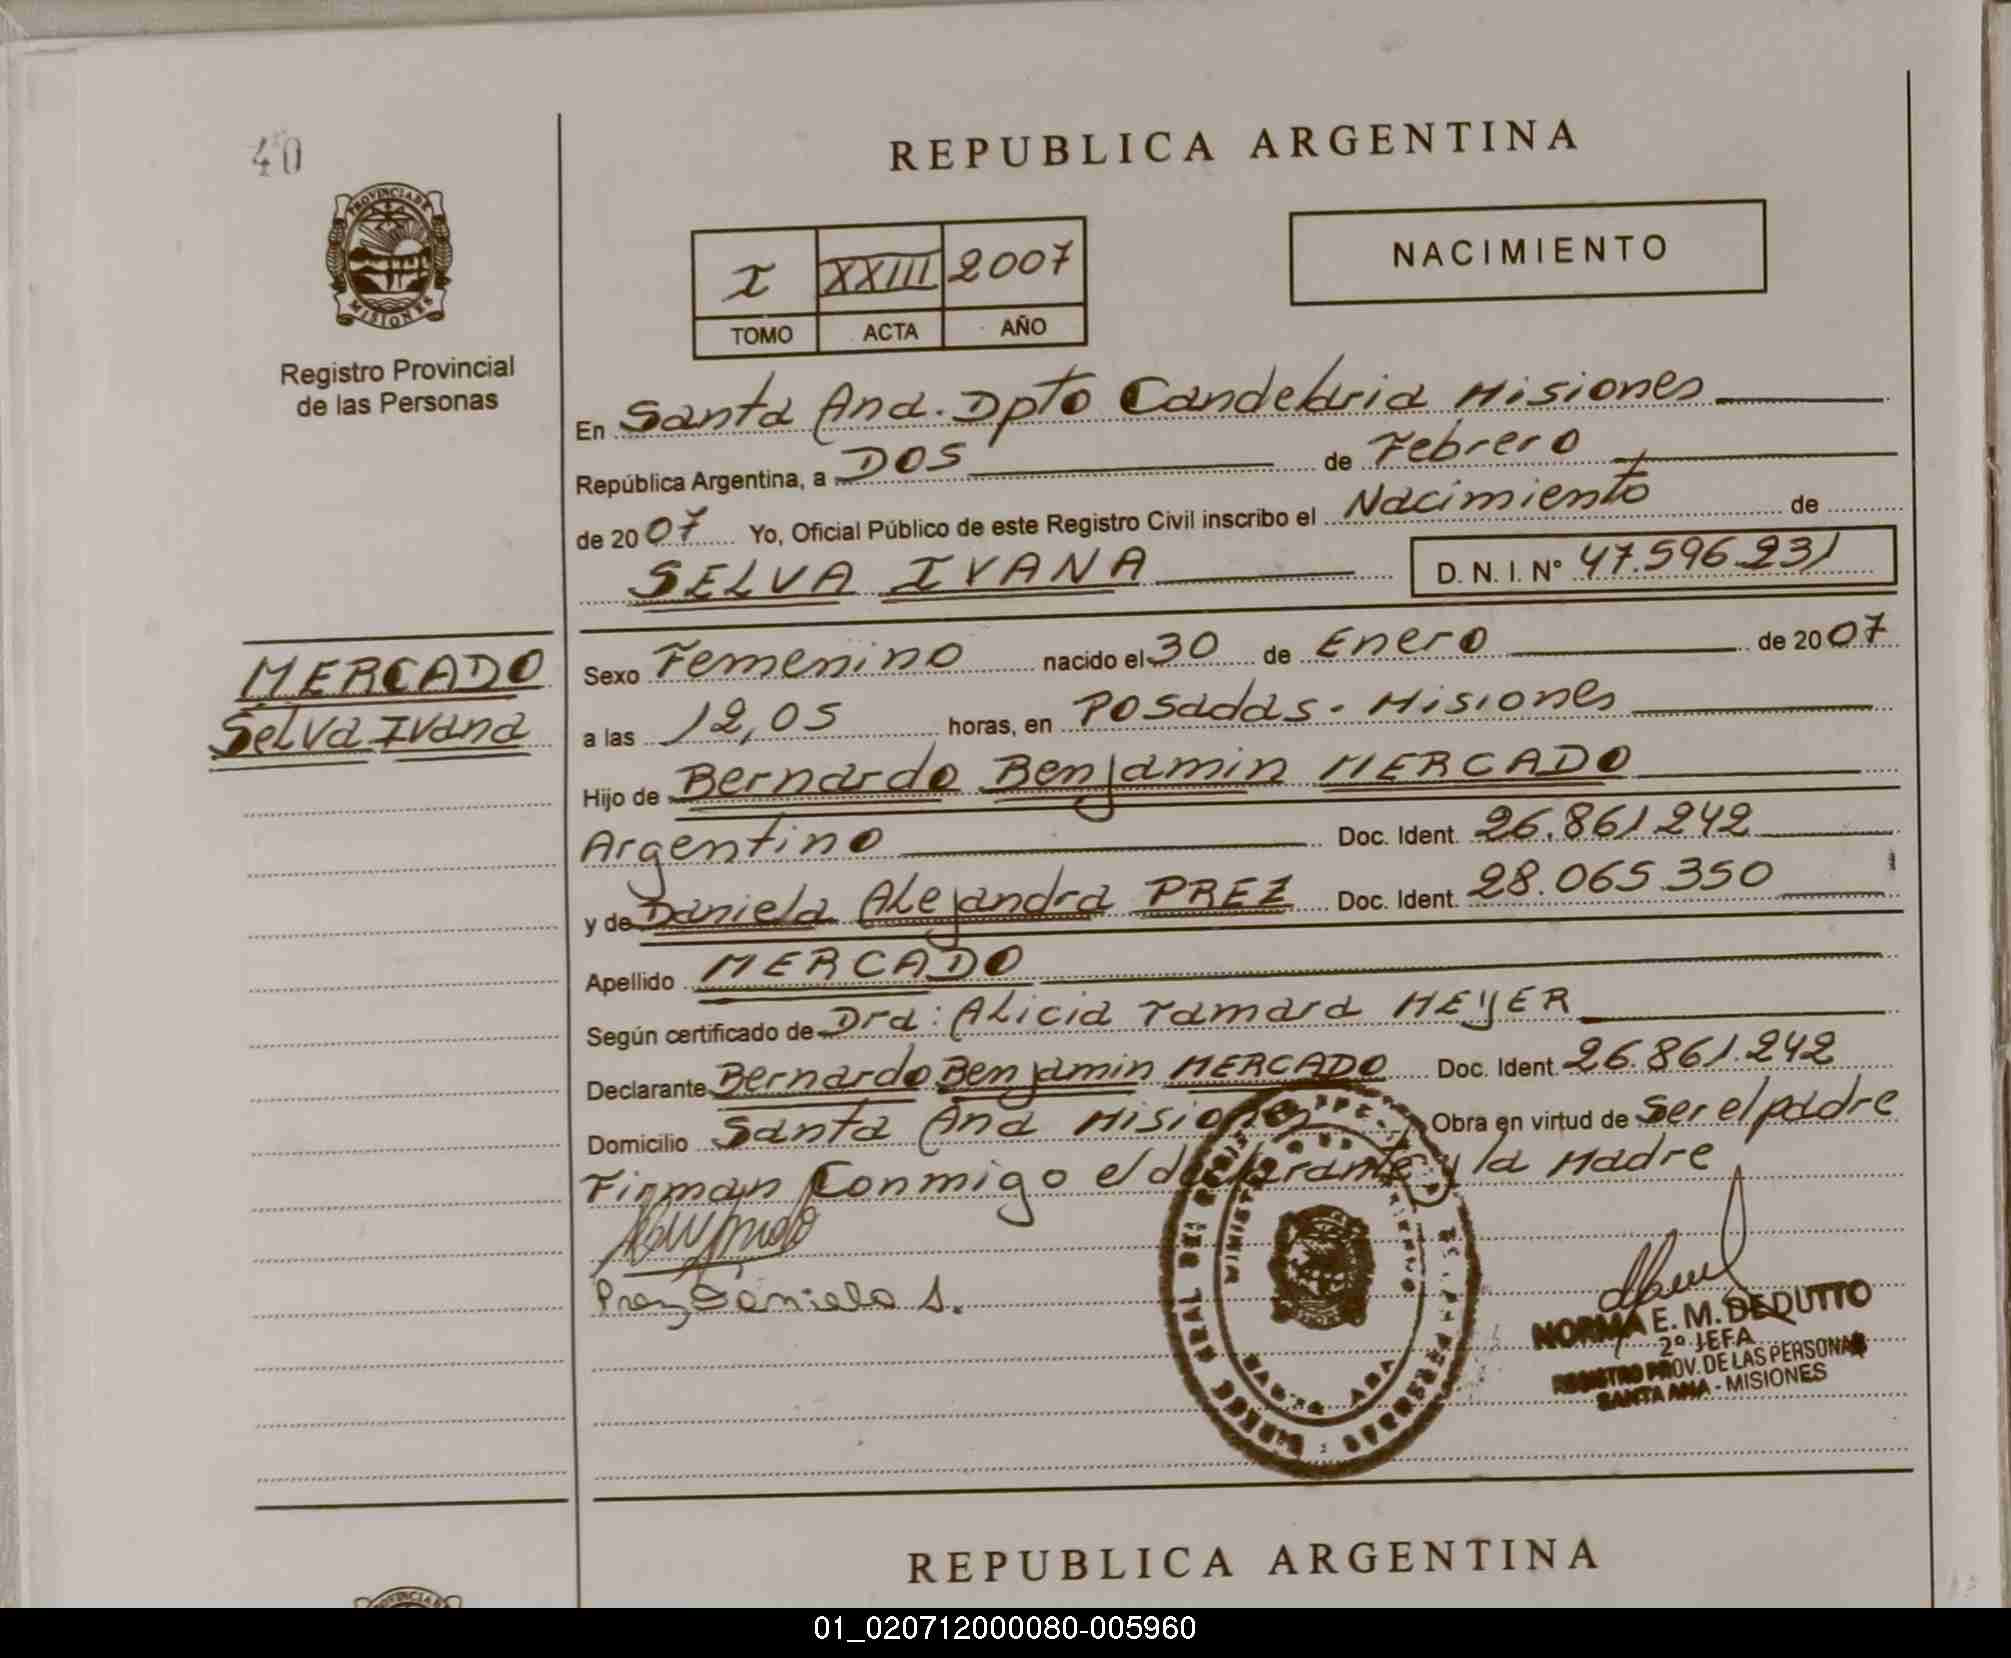 40
PROVINCIA DE
MISIONES
Registro Provincial
de las Personas
REPUBLICA ARGENTINA
I XXIII 2007
TOMO ACTA AÑO
NACIMIENTO
En Santa Ana. Dpto Candelaria Misiones
República Argentina, a DOS de Febrero
de 2007 Yo, Oficial Público de este Registro Civil inscribo el Nacimiento de
SELVA IVANA D. N. I. N° 47.596.231
MERCADO
Selva Ivana
Sexo Femenino nacido el 30 de Enero de 2007
a las 12,05 horas, en Posadas - Misiones
Hijo de Bernardo Benjamin MERCADO
Argentino Doc. Ident. 26.861.242
y de Daniela Alejandra PREZ Doc. Ident. 28.065.350
Apellido MERCADO
Según certificado de Dra: Alicia Tamara MEYER
Declarante Bernardo Benjamin MERCADO Doc. Ident. 26.861.242
Domicilio Santa Ana Misiones Obra en virtud de Ser el padre
Firman Conmigo el declarante y la Madre
Prez Daniela A.
NORMA E. M. DEDUTTO
2º JEFA
REGISTRO PROV. DE LAS PERSONAS
SANTA ANA - MISIONES
REPUBLICA ARGENTINA
01_020712000080-005960